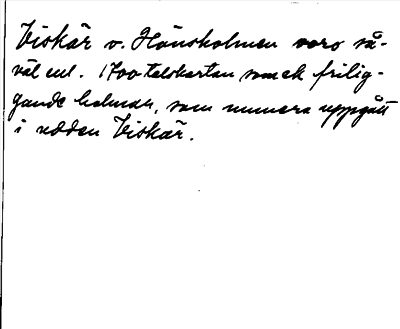 Viskär o. Hönsholmen voro så-
väl enl. 1700-talskartan som ek frilig-
gande holmar, som numera uppgått
i udden Viskär.